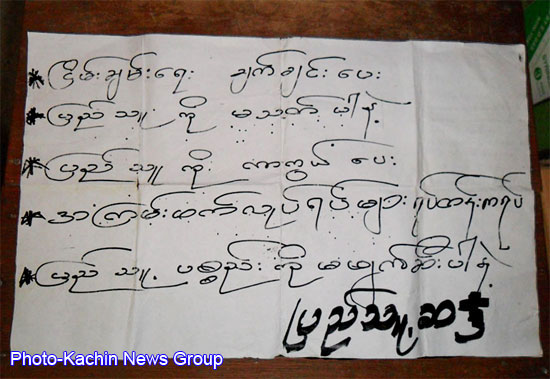 * ငြိမ်းချမ်းရေး ချက်ချင်း ပေး
* ပြည်သူ ကို မသတ် ပါနဲ့
* ပြည်သူ ကို ကာကွယ် ပေး
* အကြမ်းဖက်လုပ်ရပ်များ ရပ်တန်းကရပ်
* ပြည်သူ့ ပစ္စည်း ကို မဖျက်ဆီးပါနဲ့
ပြည်သူ့ဆန္ဒ
Photo-Kachin News Group